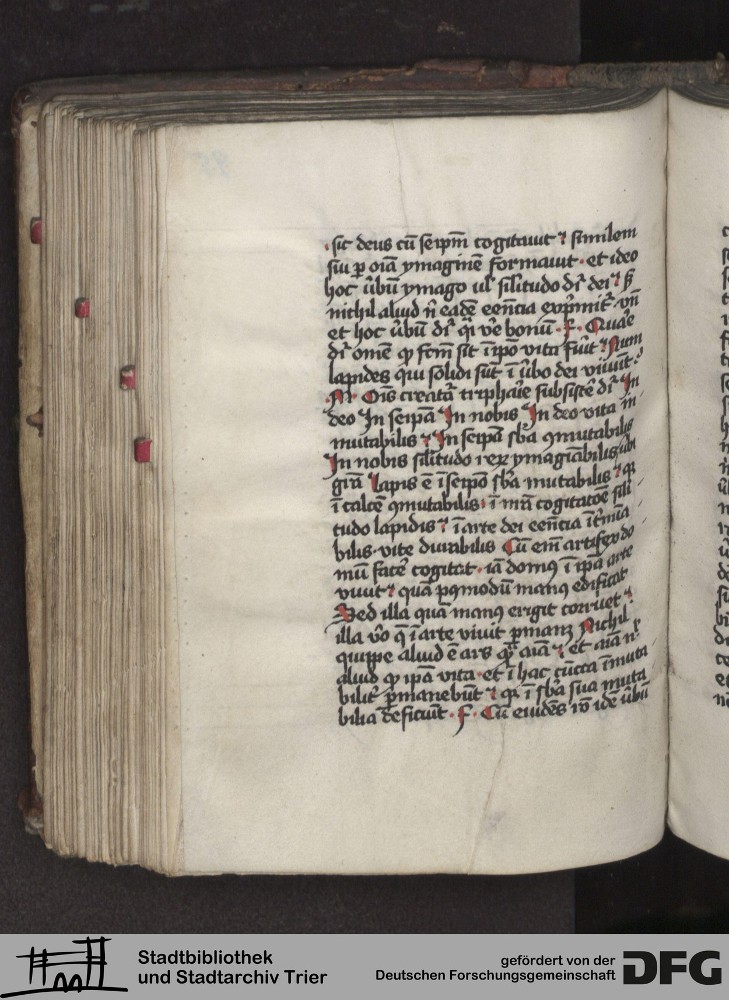 sic deus cū seip̄m cogitauit ⁊ similem
sui ꝑ oīa ymaginē formauit · et ideo
hoc ūbū ymago ul̓ sīlitudo dr̄ dei ⁊ s
nichil aliud n̄ eādē eēncia exp̄mitr̄ · vn̄
et hoc ūbū dr̄ q̄i ve bonū · F · Quare
dr̄ omē qd̓ fcm̄ sit ī ip̄o vita fūit ⁊ Num
lapides qui solidi sūt ī ūbo dei viuūt
M · Oīs creatā triphaīe subsistē dr̄ In
deo In seipā In nobis In deo vita in
mutabilis ⁊ In seipā sb̄a ꝯmutabilis
In nobis sīlitudo reꝝ ymaginabilis ūbi
grā lapis ē ī seipō sb̄a mutabilis ⁊ qr̄
ī calcē ꝯmutabilis · ī mrā cogitatōe sīli
tudo lapidis ⁊ ī arte dei eēncia īcōmuta
bilis · vite durabilis Cū em̄ artifex do
mū facē cogitat · iā domꝰ ī ipā arte
viuit ⁊ quā pꝰmodū manꝰ edificat
Sed illa quā manꝰ erigit corruet ⁊
illa v̄o q̄ ī arte viuit ꝑmanꝫ Nichil
quippe aliud ē ars qr̄ aīa ⁊ et aīā n̄
aliud qr̄ ipā vita · et ī hac cūcta īmuta
bilit̄ ꝑmanebūt ⁊ qr̄ ī sb̄a sua muta
bilia deficiūt · F · Cū euidēs rō idē ūbū
Stadtbibliothek
und Stadtarchiv Trier
gefördert von der
Deutschen Forschungsgemeinschaft
DFG